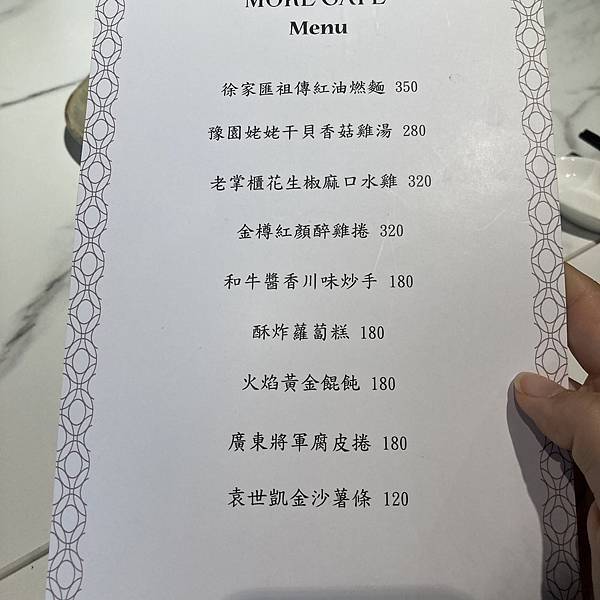 MORE CAFE
Menu
徐家匯祖傳紅油燃麵 350
豫園姥姥干貝香菇雞湯 280
老掌櫃花生椒麻口水雞 320
金樽紅顏醉雞捲 320
和牛醬香川味炒手 180
酥炸蘿蔔糕 180
火焰黃金餛飩 180
廣東將軍腐皮捲 180
袁世凱金沙薯條 120